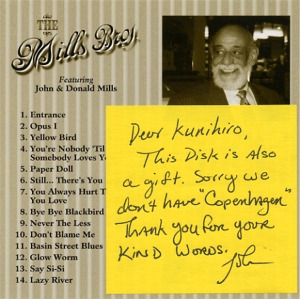 THE
Mills Bros.
Featuring
John & Donald Mills
1. Entrance
2. Opus I
3. Yellow Bird
4. You're Nobody 'Til
Somebody Loves Yo
5. Paper Doll
6. Still... There's You
7. You Always Hurt T
You Love
8. Bye Bye Blackbird
9. Never The Less
10. Don't Blame Me
11. Basin Street Blues
12. Glow Worm
13. Say Si-Si
14. Lazy River
Dear Kunihiro,
This Disk is Also
a gift. Sorry we
don't have "Copenhagen"
Thank you for your
Kind words.
John